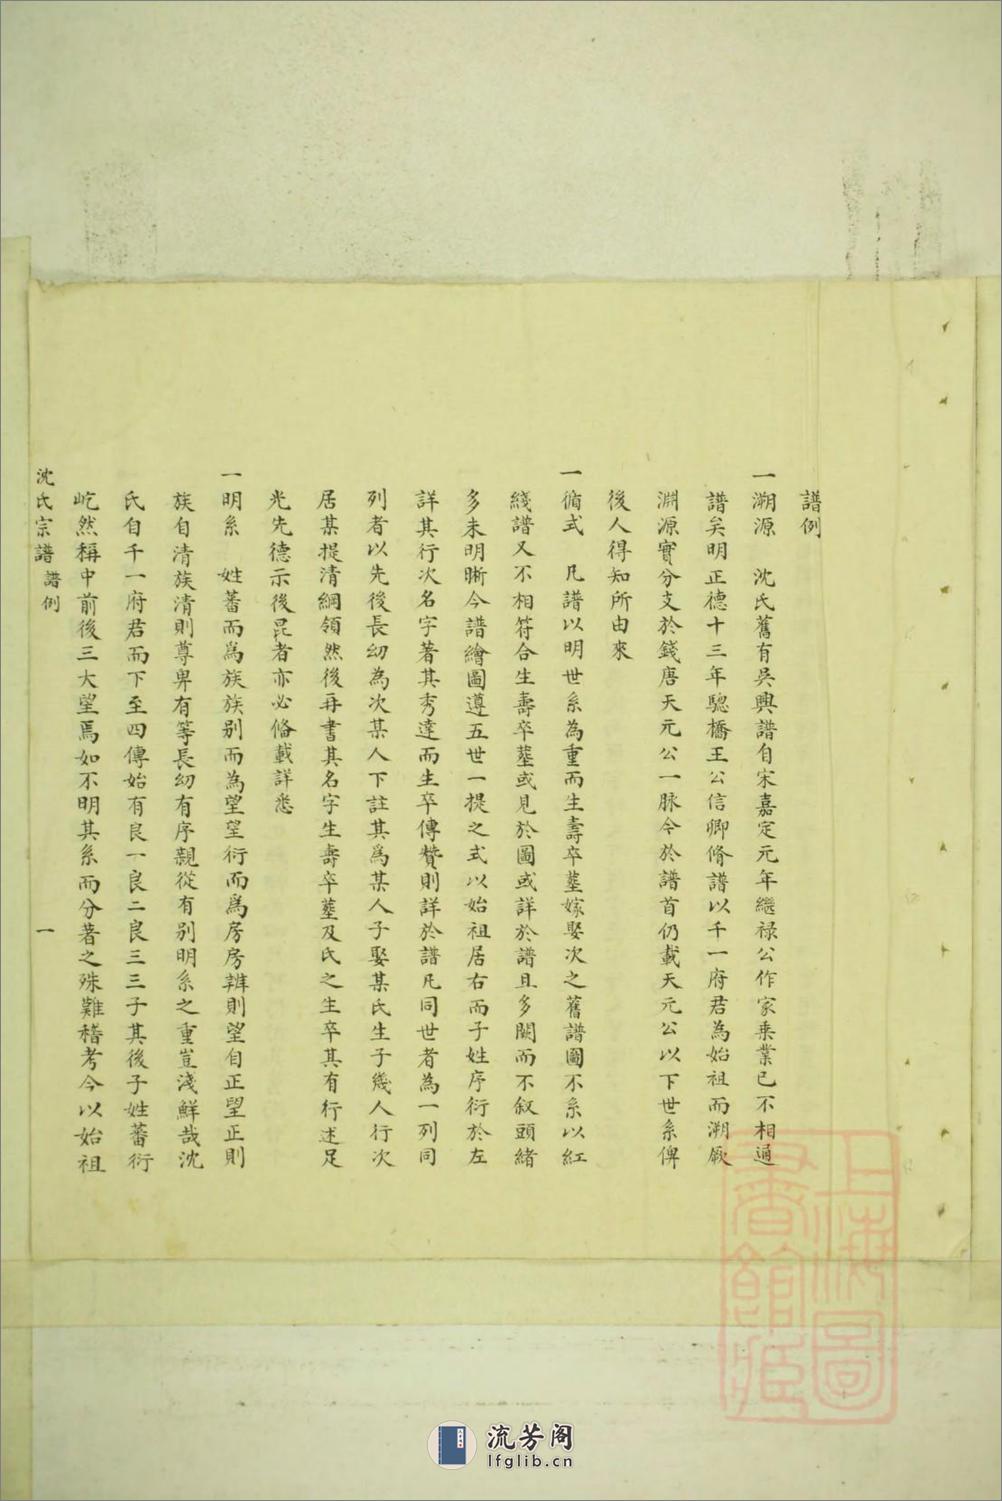 譜例
一溯源　沈氏舊有吳興譜自宋嘉定元年繼禄公作家乗業已不相通
譜矣明正德十三年驄橋王公信卿脩譜以千一府君為始祖而溯厥
淵源實分支於錢唐天元公一脉今於譜首仍載天元公以下世系俾
後人得知所由來
一脩式　凡譜以明世系為重而生壽卒塟嫁娶次之舊譜圖不系以紅
綫譜又不相符合生壽卒塟或見於圖或詳於譜且多闕而不叙頭緒
多未明晰今譜繪圖遵五世一提之式以始祖居右而子姓序衍於左
詳其行次名字著其秀達而生卒傳贊則詳於譜凡同世者為一列同
列者以先後長幼為次某人下註其為某人子娶某氏生子幾人行次
居某提清綱領然後再書其名字生壽卒塟及氏之生卒其有行述足
光先德示後昆者亦必俻載詳悉
一明系　姓蕃而爲族族别而為望望衍而爲房房辨則望自正望正則
族自清族清則尊卑有等長幼有序親從有别明系之重豈淺鮮哉沈
氏自千一府君而下至四傳始有良一良二良三三子其後子姓蕃衍
屹然稱中前後三大望焉如不明其系而分著之殊難稽考今以始祖
沈氏宗譜 譜例 一
上海圖書館藏
流芳阁
lfglib.cn